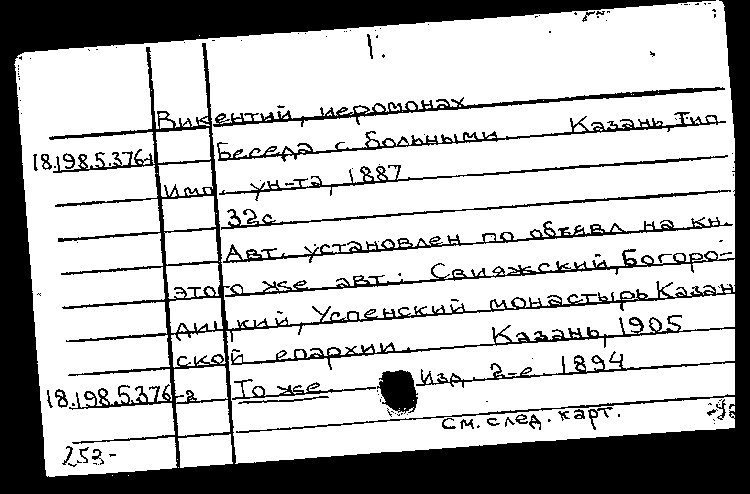 1.
Викентий, иеромонах
18.198.5.376-1 Беседа с больными. Казань, Тип
Имп. ун-та, 1887.
32с.
Авт. установлен по объявл на кн.
этого же авт.: Свияжский, Богоро-
дицкий, Успенский монастырь Казан
ской епархии. Казань, 1905
18.198.5.376-2 То же. Изд. 2-е. 1894
См. след. карт.
253-